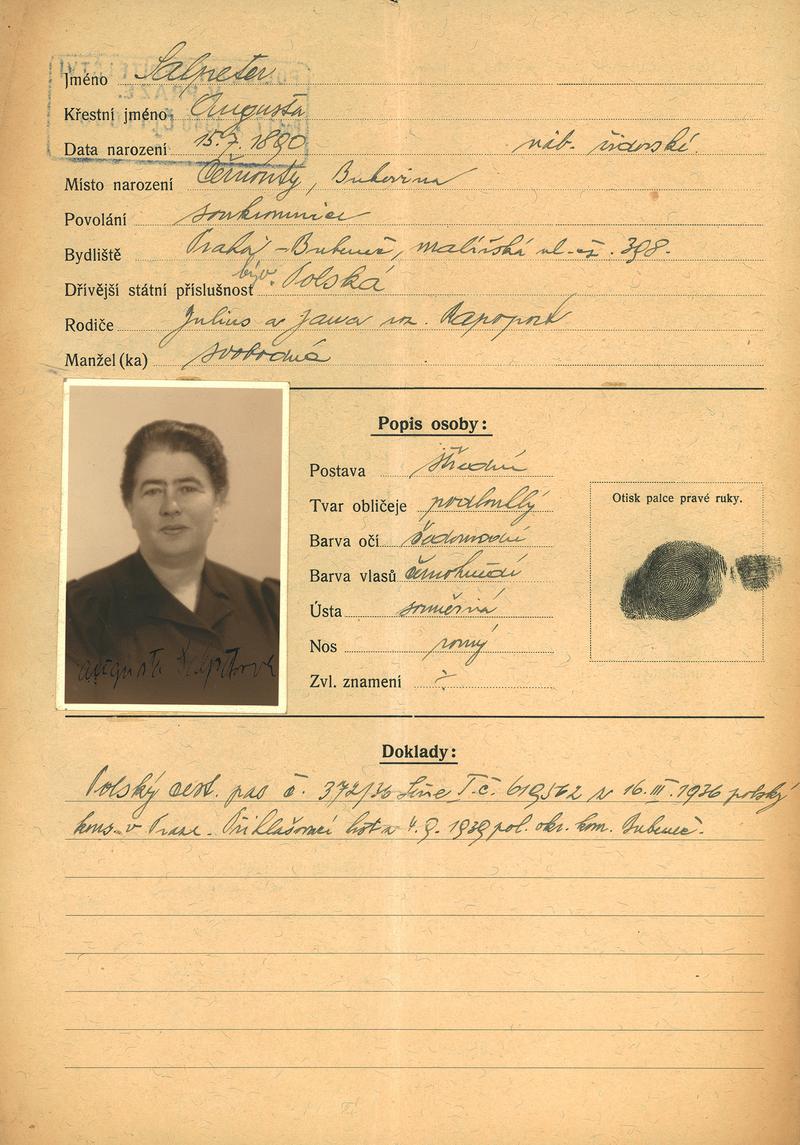 Jméno Salpeter
Křestní jméno Augusta
Data narození 15. 7. 1890 náb. židovské.
Místo narození Bukovina
Povolání soukromnice
Bydliště Praha - Bubeneč, malířská ul. čp. 398.
Dřívější státní příslušnost býv. Polská
Rodiče Julius a roz. Rapoport
Manžel(ka) svobodná
Popis osoby:
Postava střední
Tvar obličeje podlouhlý
Barva očí šedomodré
Barva vlasů černohnědé
Ústa souměrná
Nos rovný
Zvl. znamení ÷
Otisk palce pravé ruky.
Augusta
Doklady:
Polský cest. pas č. 372/36 Serie I. č. 619562 z 16. III. 1936 polský
kons. v Praze. Přihlašovací list z 4. 9. 1939 pol. okr. kom. Bubeneč.